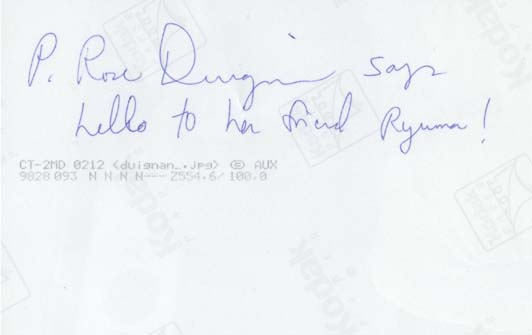 P. Rose Duignan says
hello to her friend Ryuma!
CT-2MD 0212 <duignan_.jpg> AUX
9828 093 N N N N--- Z554.6/100.0
Kodak